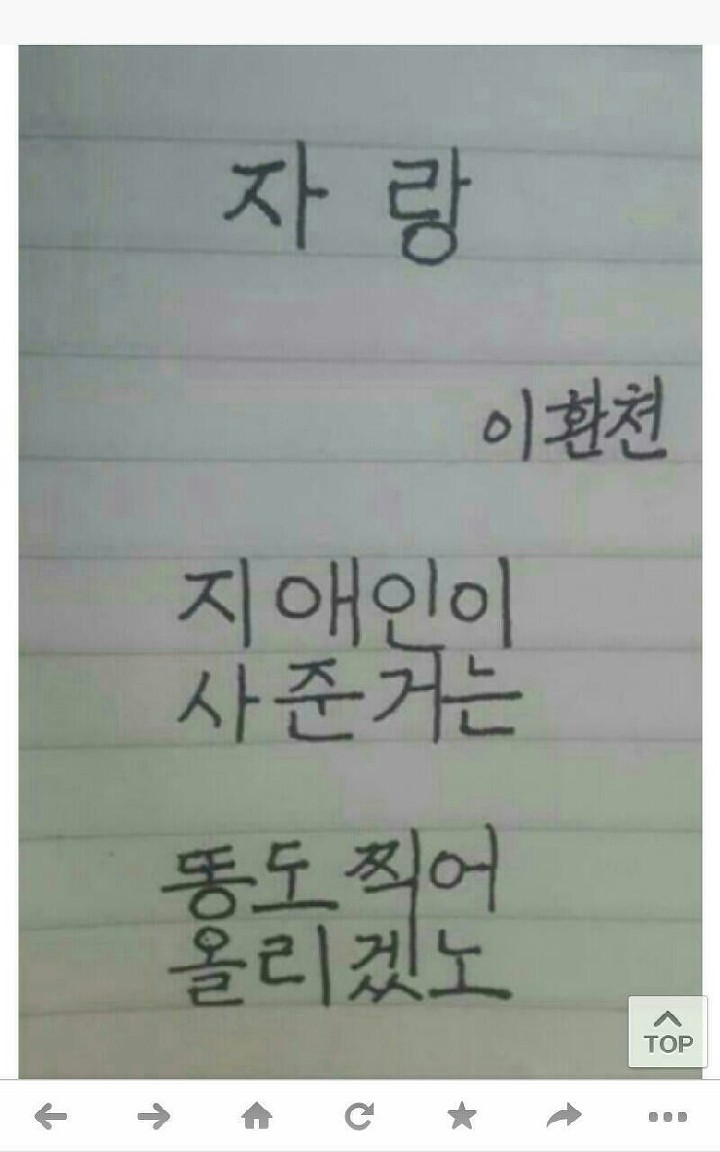 자 랑
이환천
지 애인이
사준거는
똥도 찍어
올리겠노
TOP